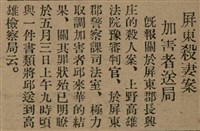 屏東殺妻案
加害者送局
既報關於屏東郡長興
庄的殺人案、上野高雄
法院豫審判官、於屏東
郡警察課司法室、極力
取調加害者邱來華的結
果、關其罪狀始已明瞭
於五月三日上午九時頃
與一件書類將邱送到高
雄檢察局云。